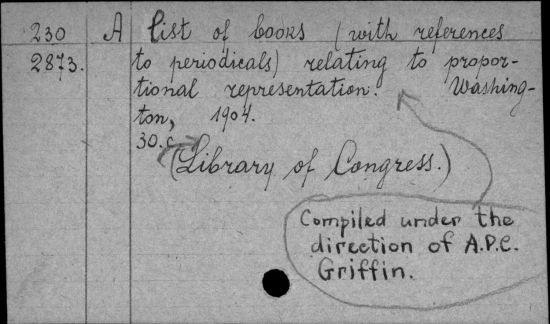 230 A List of books (with references
2873. to periodicals) relating to propor-
tional representation. Washing-
ton, 1904.
30.c.
(Library of Congress.)
Compiled under the
direction of A.P.C.
Griffin.